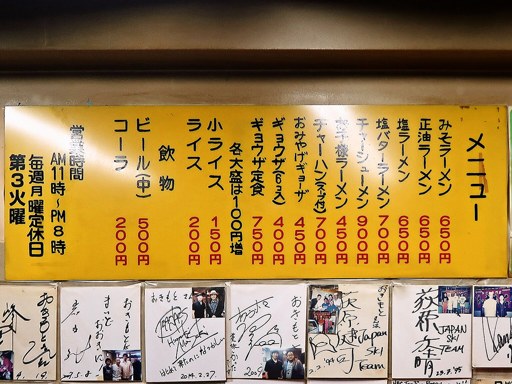 メニュー
みそラーメン 650円
正油ラーメン 650円
塩ラーメン 650円
塩バターラーメン 700円
チャーシューメン 900円
お子様ラーメン 450円
チャーハン(スープ付) 700円
おみやげギョーザ 450円
ギョウザ(6コ入) 400円
ギョウザ定食 750円
各大盛は100円増
小ライス 150円
ライス 200円
飲物
ビール(中) 500円
コーラ 200円
営業時間
AM11時〜PM8時
毎週月曜定休日
第3火曜
おきもと
おきもと
まいど
おきもと
2014.2.27.
おきもと
おきもと
荻原
Japan
SKI
Team
荻原
JAPAN
SKI
TEAM